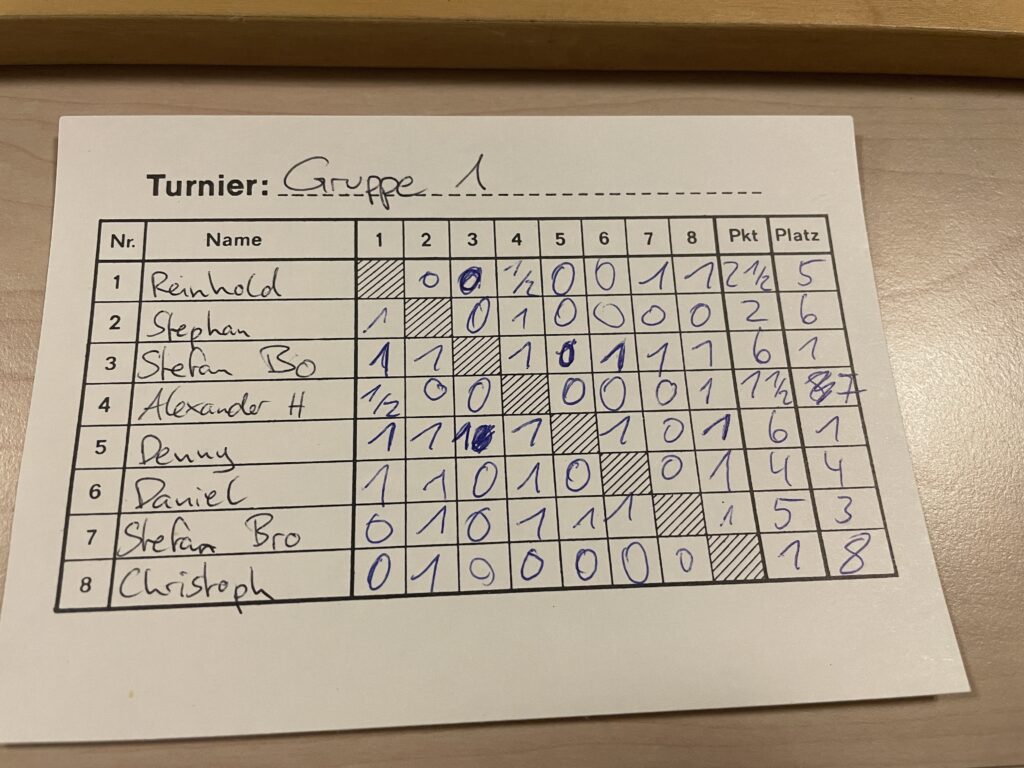 Turnier: Gruppe 1
Nr. Name 1 2 3 4 5 6 7 8 Pkt Platz
1 Reinhold 0 0 1/2 0 0 1 1 2 1/2 5
2 Stephan 1 0 1 0 0 0 0 2 6
3 Stefan Bo 1 1 1 0 1 1 1 6 1
4 Alexander H 1/2 0 0 0 0 0 1 1 1/2 7
5 Denny 1 1 1 1 1 0 1 6 1
6 Daniel 1 1 0 1 0 0 1 4 4
7 Stefan Bro 0 1 0 1 1 1 1 5 3
8 Christoph 0 1 0 0 0 0 0 1 8